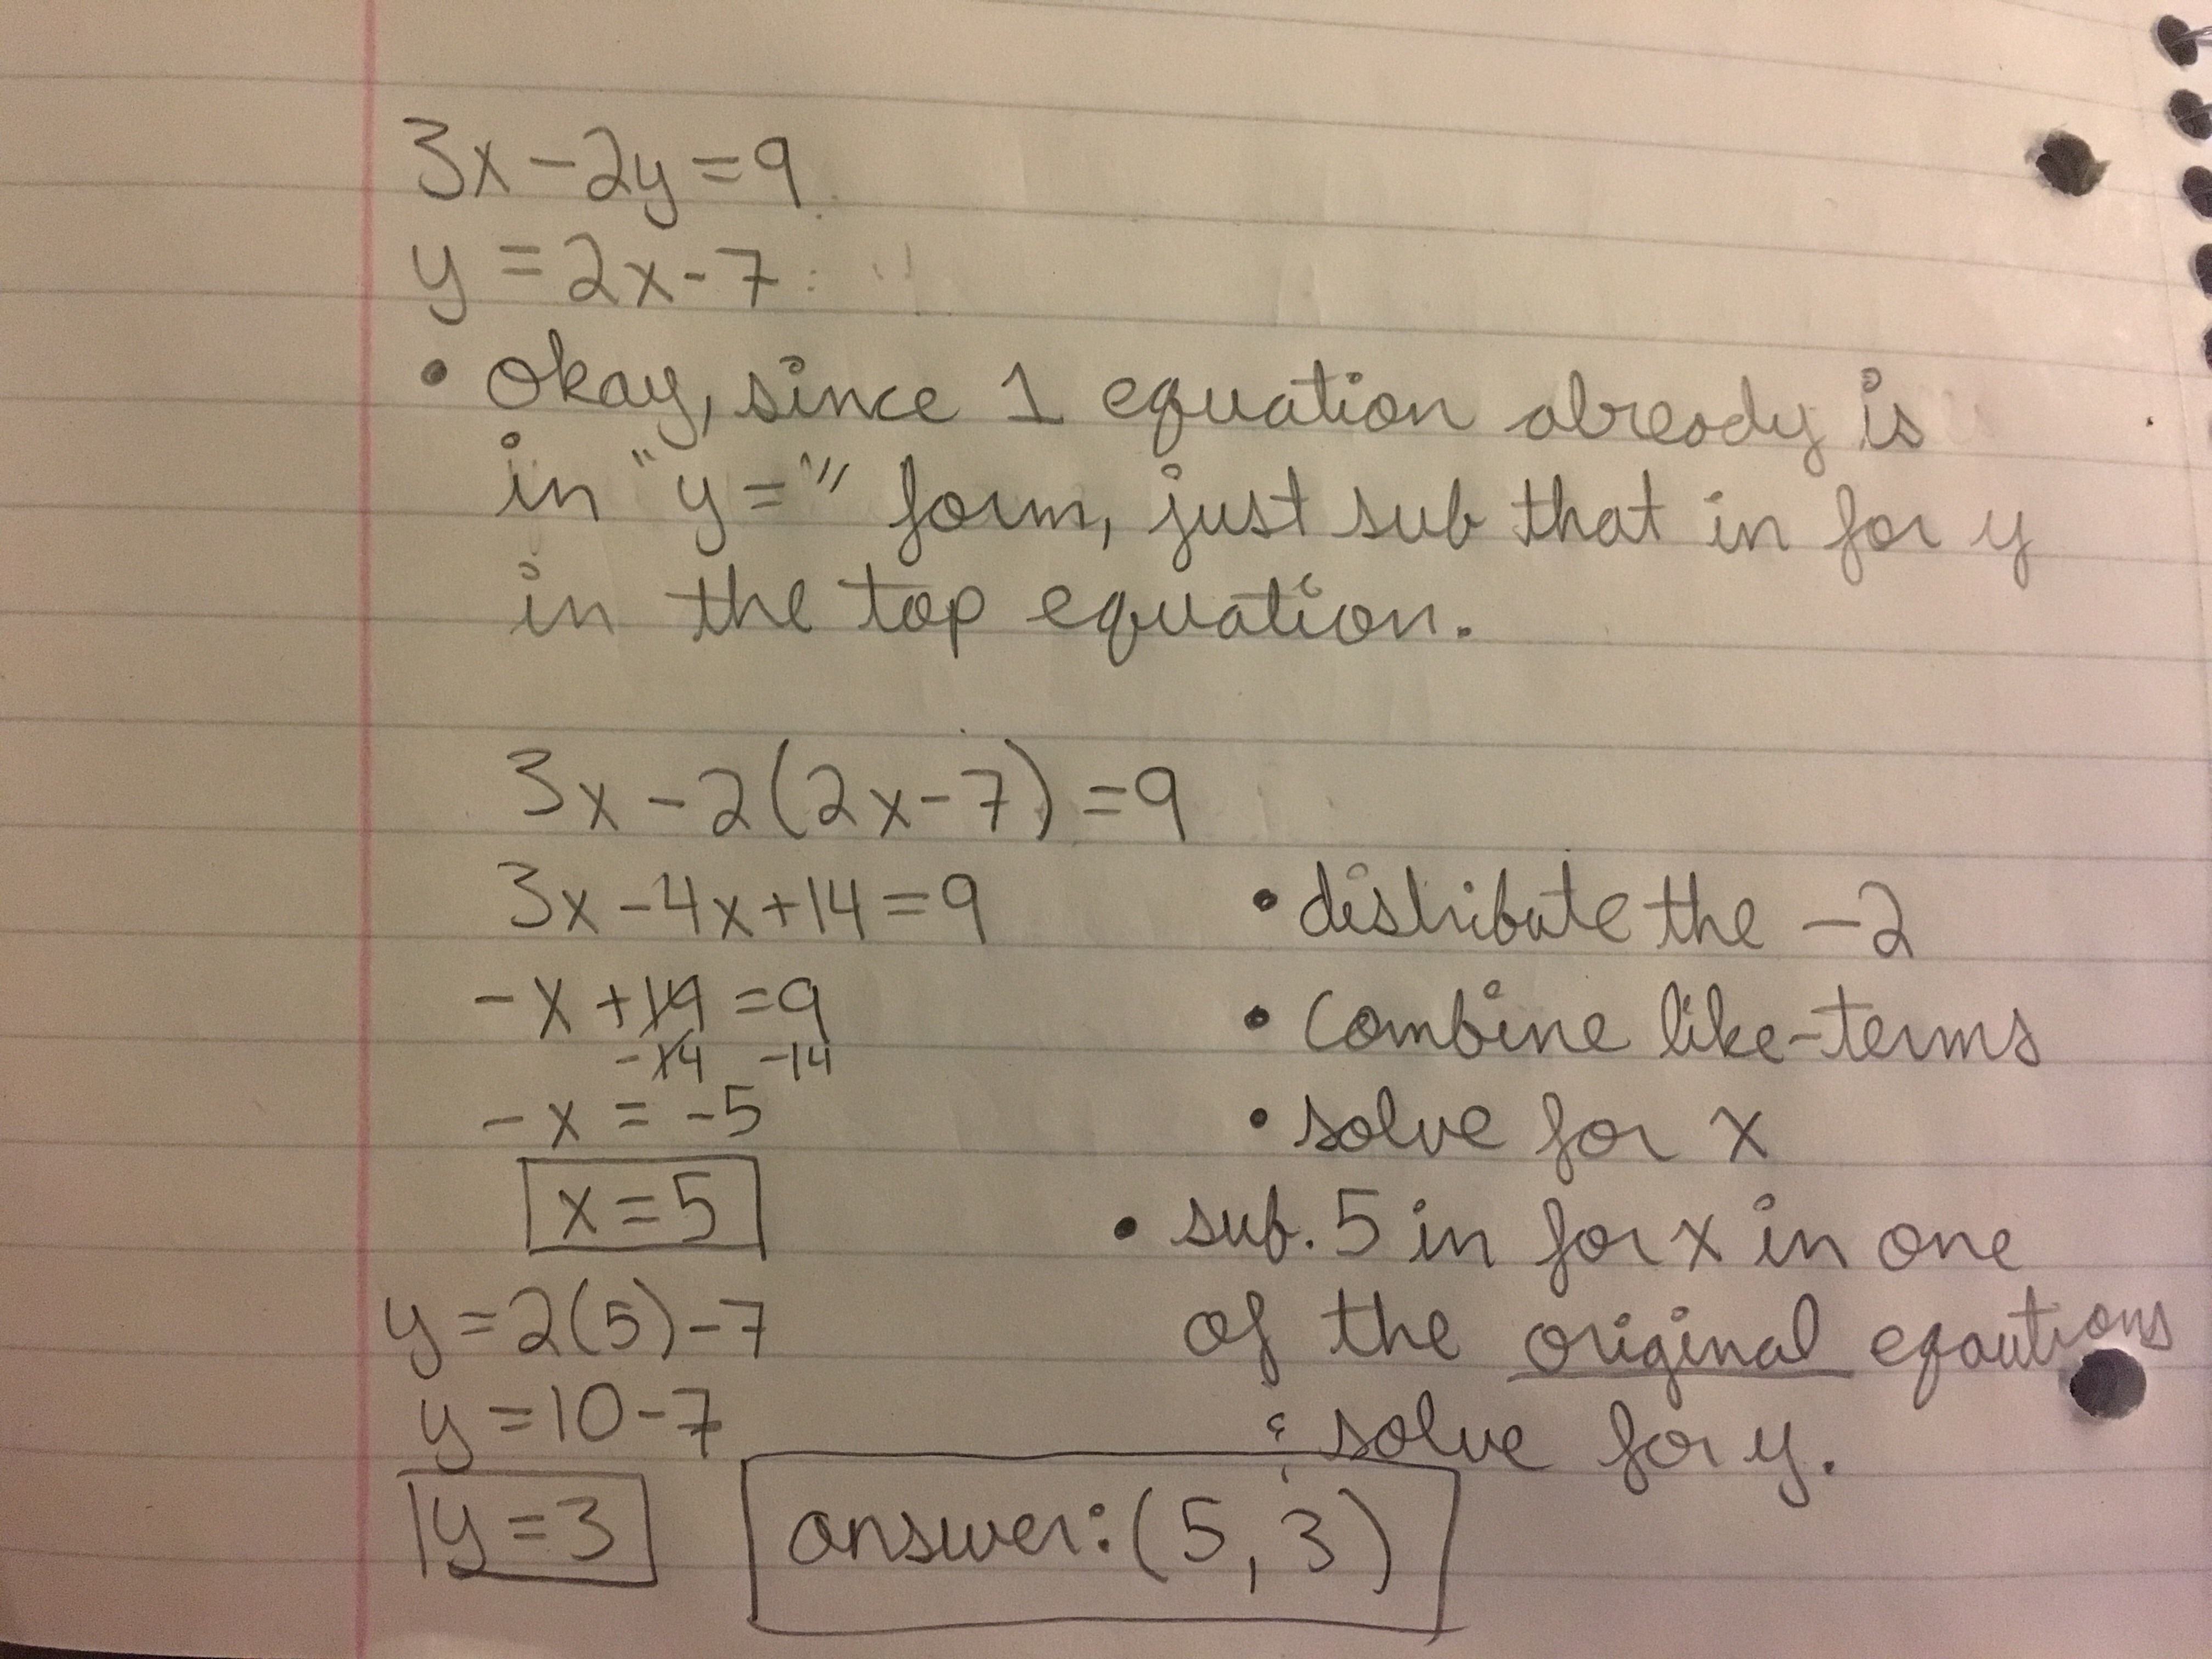 3x-2y=9
y=2x-7
• Okay, since 1 equation already is
in "y=" form, just sub that in for y
in the top equation.
3x-2(2x-7)=9
3x-4x+14=9 • distribute the -2
-x+14=9 • Combine like-terms
-14 -14
-x=-5 • solve for x
x=5 • sub. 5 in for x in one
y=2(5)-7 of the original eqautions
y=10-7 & solve for y.
y=3 answer: (5, 3)